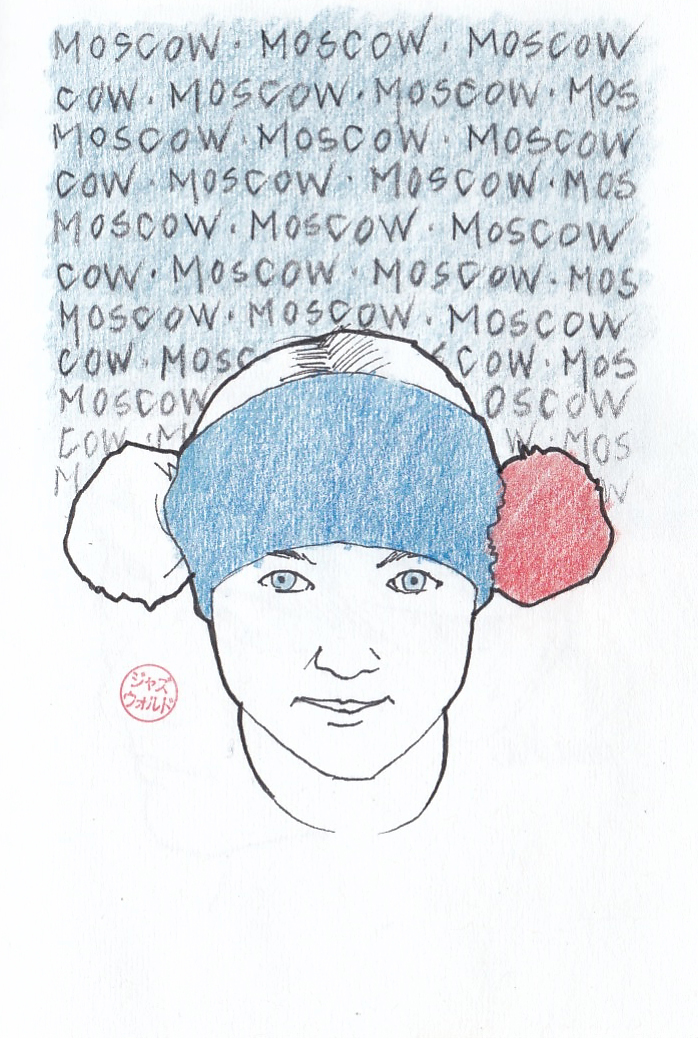 MOSCOW · MOSCOW · MOSCOW
COW · MOSCOW · MOSCOW · MOS
MOSCOW · MOSCOW · MOSCOW
COW · MOSCOW · MOSCOW · MOS
MOSCOW · MOSCOW · MOSCOW
COW · MOSCOW · MOSCOW · MOS
MOSCOW · MOSCOW · MOSCOW
COW · MOSC COW · MOS
MOSCOW OSCOW
COW · M W · MOS
M W
ジャズ
ウォルド